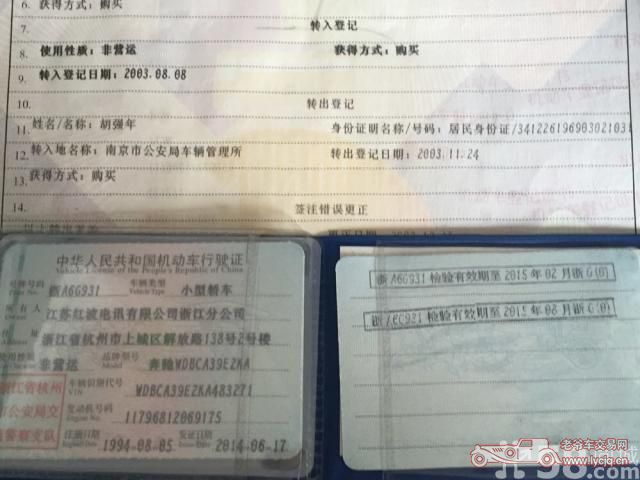 6. 获得方式: 购买
7. 转入登记
8. 使用性质: 非营运 获得方式: 购买
9. 转入登记日期: 2003.08.08
10. 转出登记
11. 姓名/名称: 胡强年 身份证明名称/号码: 居民身份证/341226196903021031
12. 转入地名称: 南京市公安局车辆管理所 转出登记日期: 2003.11.24
13. 获得方式: 购买
14. 签注错误更正
更正日期
中华人民共和国机动车行驶证
Vehicle License of the People's Republic of China
号牌号码 浙A6G931 车辆类型 小型轿车
Vehicle Type
所有人 江苏红波电讯有限公司浙江分公司
址 浙江省杭州市上城区解放路138号2号楼
使用性质 非营运 品牌型号 奔驰WDBCA39E2KA
Model
车辆识别代号 WDBCA39E2KA483271
VIN
浙江省杭州
市公安局交
警察支队
发动机号码 11796812069175
Engine No.
注册日期 1994-08-05 发证日期 2014-06-17
Issue Date
浙A6G931 检验有效期至 2015年02月浙G(0)
浙A6G931 检验有效期至 2015年08月浙G(0)
老爷车交易网
www.lycjq.cn